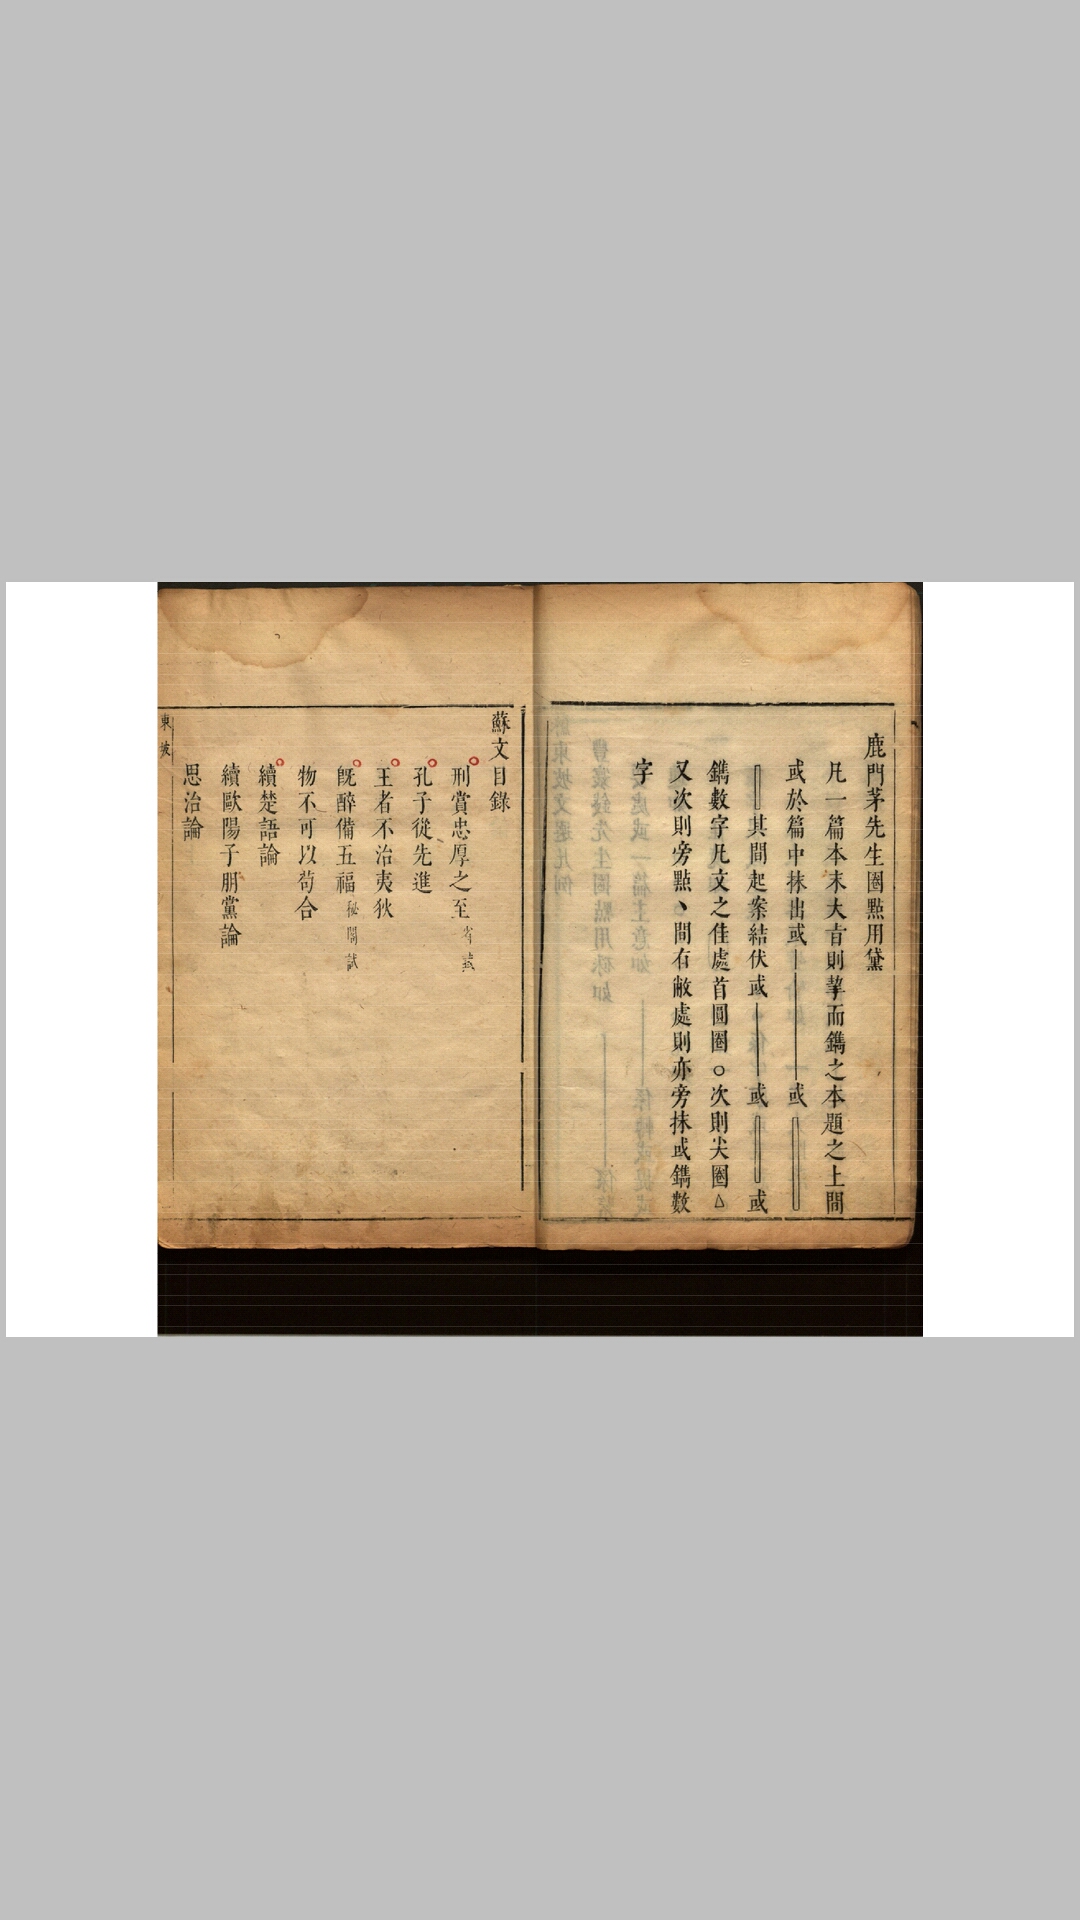 鹿門茅先生圈點用黛
凡一篇本末大旨則挈而鐫之本題之上間
或於篇中抹出或 或
其間起案結伏或 或 或
鐫數字凡文之佳處首圓圈○次則尖圈△
又次則旁點丶間有敝處則亦旁抹或鐫數
字
蘇文目錄
刑賞忠厚之至 省試
孔子從先進
王者不治夷狄
旣醉備五福 秘閣試
物不可以苟合
續楚語論
續歐陽子朋黨論
思治論
東坡